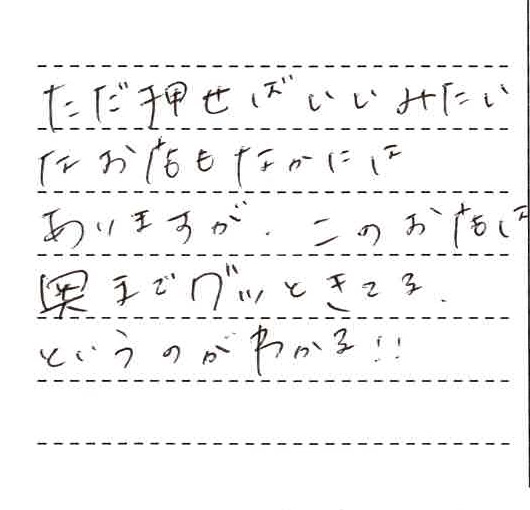 ただ押せばいいみたい
なお店もなかには
ありますが、このお店は
奥までグッときてる、
というのがわかる!!